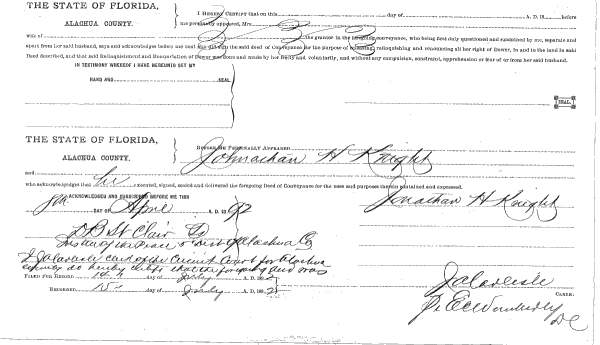 THE STATE OF FLORIDA,
ALACHUA COUNTY.
I HEREBY CERTIFY that on this day of A. D. 18 before
me personally appeared, Mrs.
wife of the grantor in the foregoing conveyance, who being first duly questioned and examined by me, separate and
apart from her said husband, says and acknowledges before me that she did sign the said deed of Conveyance for the purpose of releasing, relinquishing and renouncing all her right of Dower, in and to the land in said
Deed described, and that said Relinquishment and Renunciation of Dower was done and made by her freely and voluntarily, and without any compulsion, constraint, apprehension or fear of or from her said husband.
IN TESTIMONY WHEREOF I HAVE HEREUNTO SET MY
HAND AND SEAL
SEAL.
THE STATE OF FLORIDA,
ALACHUA COUNTY.
BEFORE ME PERSONALLY APPEARED
Johnathan H Knight
and
who acknowledges that he executed, signed, sealed and delivered the foregoing Deed of Conveyance for the uses and purposes therein contained and expressed.
ACKNOWLEDGED AND SUBSCRIBED BEFORE ME THIS
Jonathan H Knight
DAY OF April A. D. 1892
D B St Clair
Justice of the Peace Dist Alachua Co
I J A Carlisle clerk of the Circuit Court for Alachua
County do hereby certify that the foregoing deed was
FILED FOR RECORD 14 day of July A. D. 1892
RECORDED 15 day of July A. D. 1892
J A Carlisle
CLERK.
D C